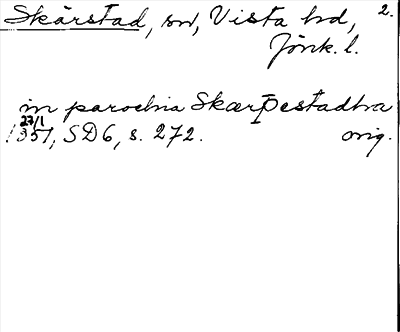 Skärstad, sn, Vista hd, 2.
Jönk. l.
in parochia Skærþestadha
23/1
1351, SD6, s. 272. orig.